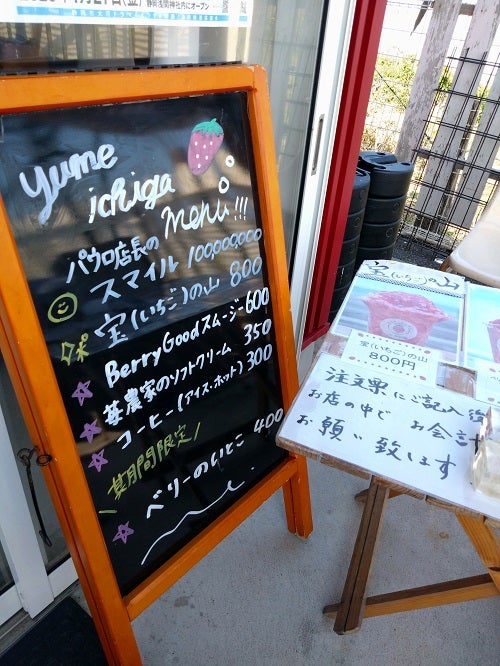 yume
ichiga
menu !!!
パウロ店長の
スマイル 100,000,000
宝(いちご)の山 800
BerryGoodスムージー600
苺農家のソフトクリーム 350
コーヒー(アイス・ホット) 300
期間限定
ベリーのいとこ 400
宝(いちご)の山
宝(いちご)の山
800円
注文票にご記入後
お店の中で お会計
お願い致します